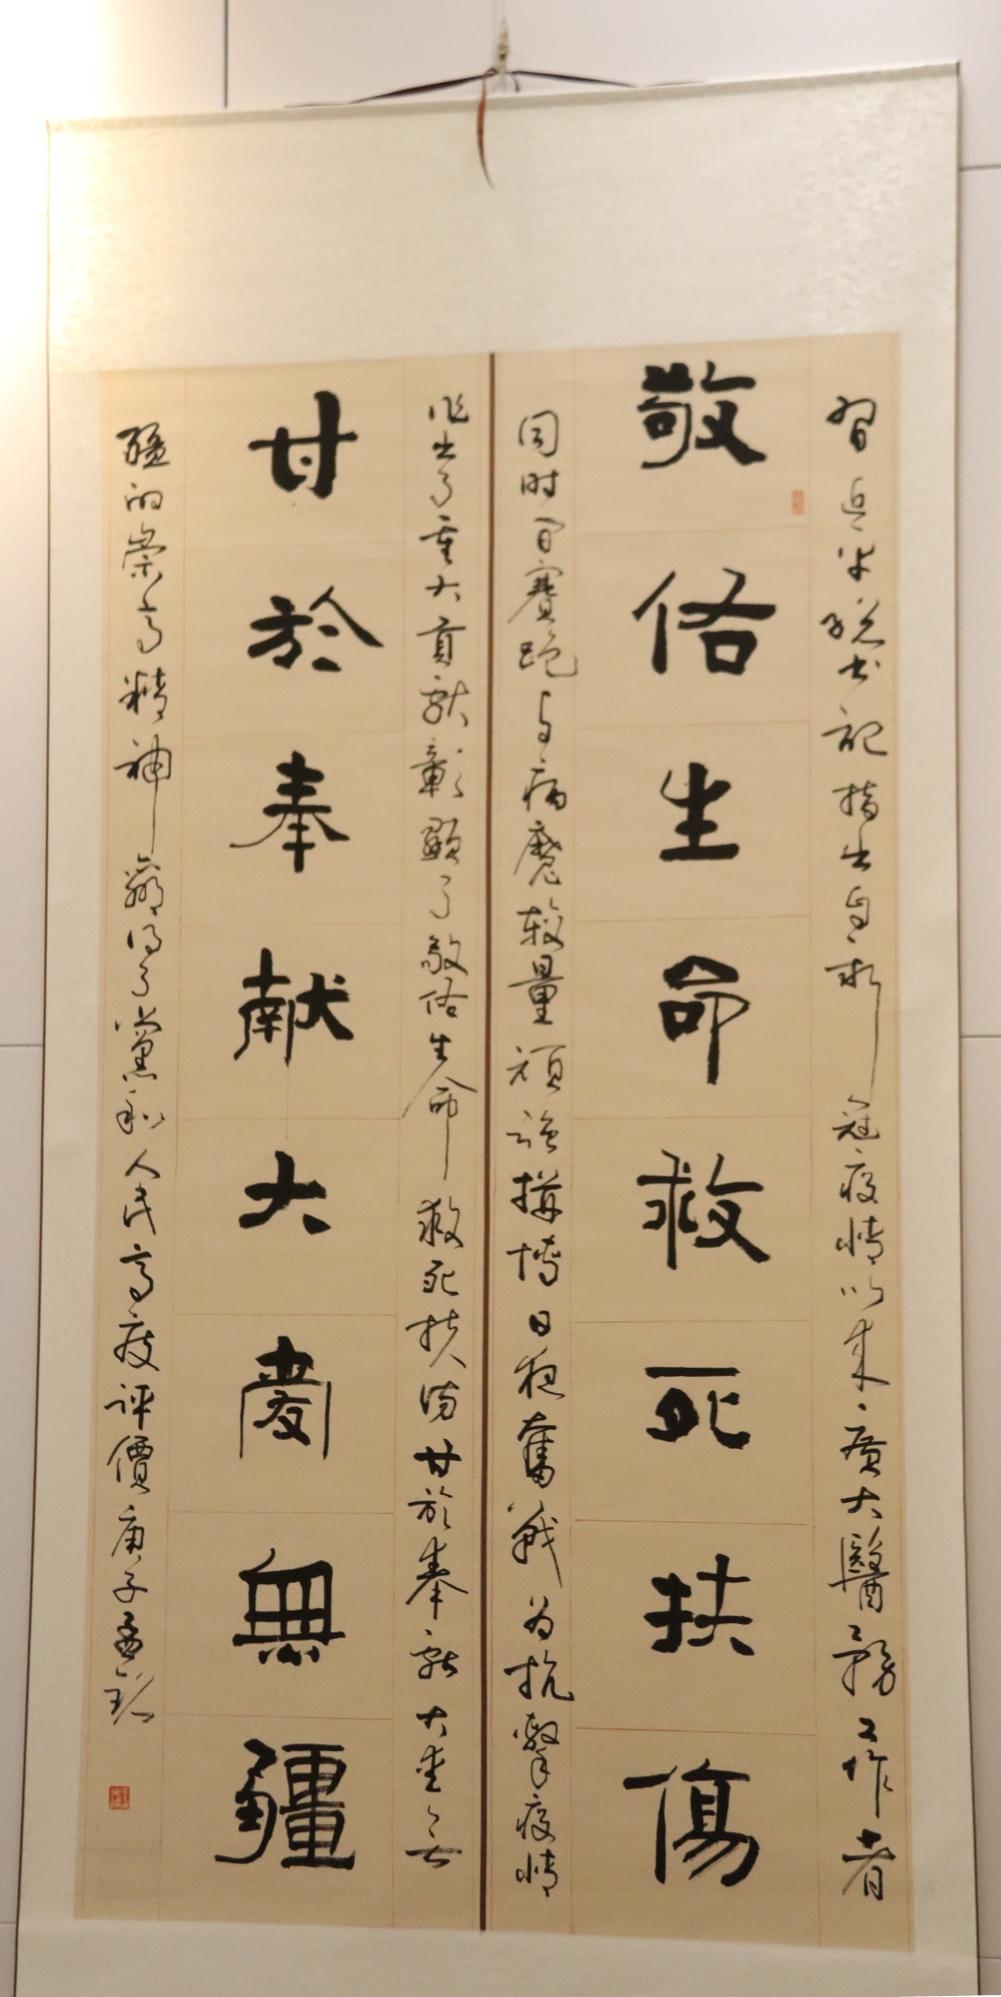 習近平總書記指出自新冠疫情以來廣大醫務工作者
敬佑生命救死扶傷
同时間賽跑与病魔較量頑强搏日夜奮戰为抗擊疫情
作出了重大貢献彰顯了敬佑生命救死扶伤甘於奉献大爱无
甘於奉献大愛無疆
疆的崇高精神贏得了黨和人民高度评價庚子孟